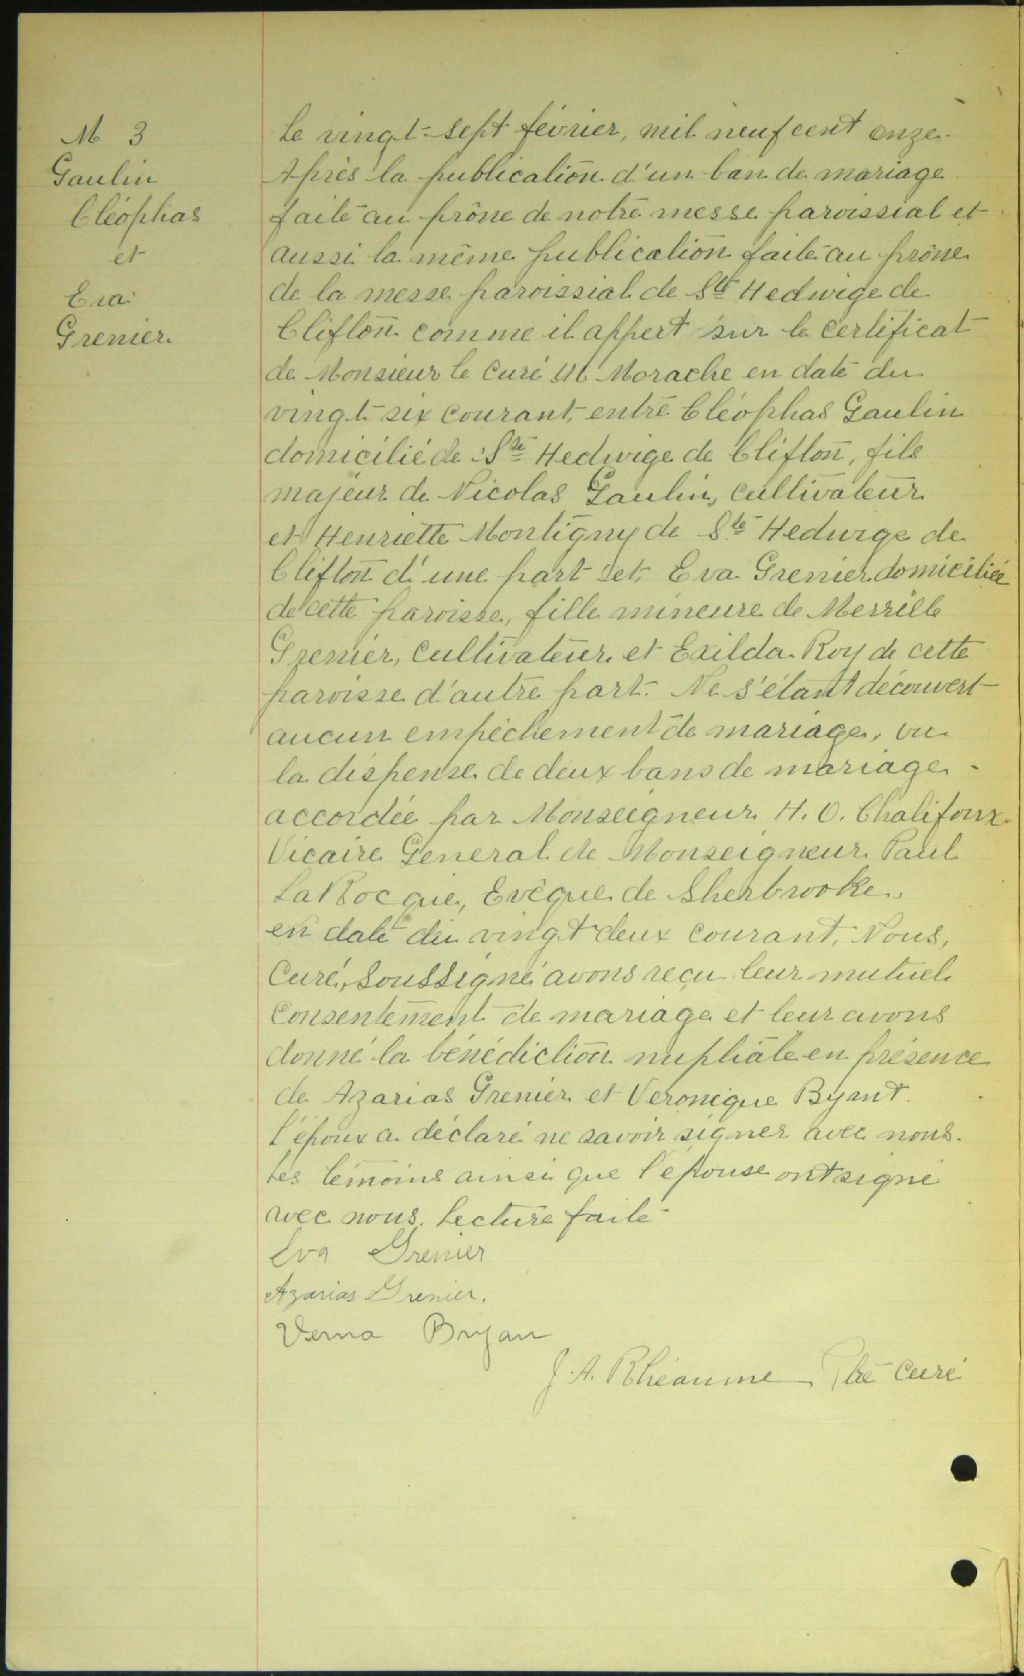 M 3
Gaulin
Cléophas
et
Eva
Grenier
Le vingt-sept février, mil neuf cent onze.
Après la publication d'un ban de mariage
faite au prône de notre messe paroissial et
aussi la même publication faite au prône
de la messe paroissial de Ste Hedwige de
Clifton comme il appert sur le certificat
de Monsieur le Curé M Morache en date du
vingt-six courant, entre Cléophas Gaulin
domicilié de Ste Hedwige de Clifton, fils
majeur de Nicolas Gaulin, cultivateur
et Henriette Montigny de Ste Hedwige de
Clifton d'une part et Eva Grenier domiciliée
de cette paroisse, fille mineure de Merrille
Grenier, cultivateur et Exilda Roy de cette
paroisse d'autre part. Ne s'étant découvert
aucun empêchement de mariage, vu
la dispense de deux bans de mariage
accordée par Monseigneur H. O. Chalifoux
Vicaire General de Monseigneur Paul
LaRocque, Evêque de Sherbrooke,
en date du vingt deux courant, Nous,
Curé, soussigné avons reçu leur mutuel
consentement de mariage et leur avons
donné la bénédiction nuptiale en présence
de Azarias Grenier et Veronique Byant.
l'époux a déclaré ne savoir signer avec nous.
Les témoins ainsi que l'épouse ont signé
avec nous. Lecture faite
Eva Grenier
Azarias Grenier.
Verna Bryan
J. A. Rhéaume Ptre Curé